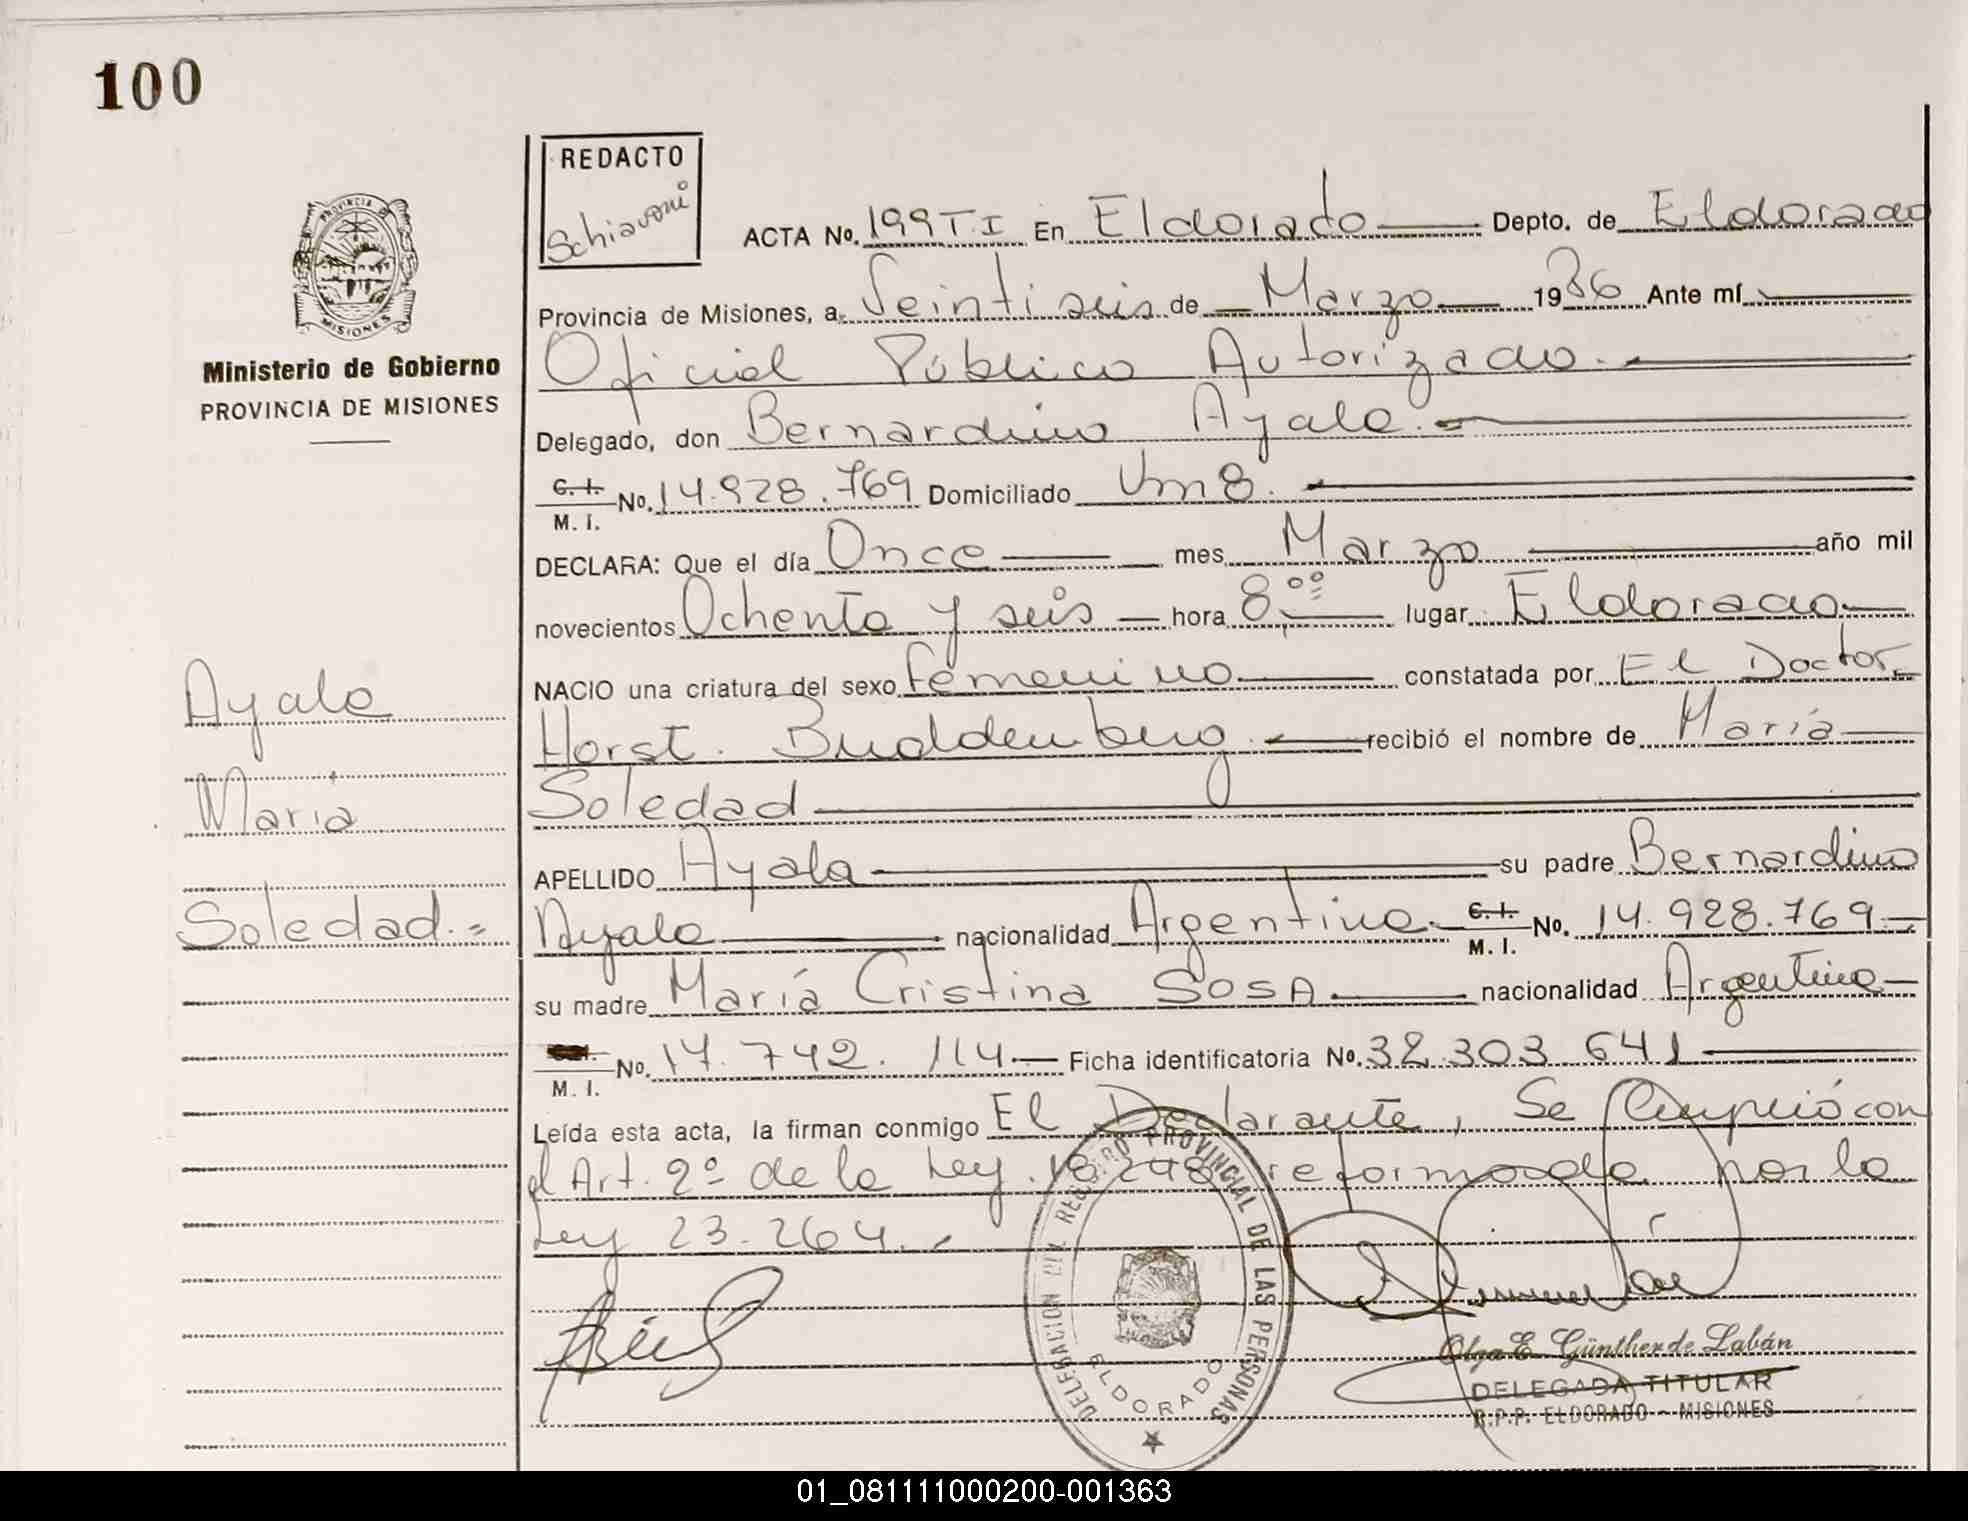 100
REDACTO
Schiavoni
PROVINCIA DE
MISIONES
Ministerio de Gobierno
PROVINCIA DE MISIONES
ACTA No. 199 T.I En Eldorado Depto. de Eldorado
Provincia de Misiones, a Veintiseis de Marzo 1986 Ante mí
Oficial Público Autorizado.
Delegado, don Bernardino Ayala.
C. I. M. I. No. 14.928.769 Domiciliado Km 8.
DECLARA: Que el día Once mes Marzo año mil
novecientos Ochenta y seis hora 8,00 lugar Eldorado
NACIO una criatura del sexo femenino constatada por El Doctor
Horst. Buddenberg. recibió el nombre de María
Soledad
APELLIDO Ayala su padre Bernardino
Ayala nacionalidad Argentina C. I. M. I. No. 14.928.769
su madre María Cristina SOSA nacionalidad Argentina
M. I. No. 17.742.114 Ficha identificatoria No. 32 303 641
Leída esta acta, la firman conmigo El Declarante, Se Cumplió con
el Art. 2º de la Ley. 18248 reformada por la
Ley 23.264.
Ayala
María
Soledad.=
DELEGACION DEL REGISTRO PROVINCIAL DE LAS PERSONAS
ELDORADO
Olga E. Günther de Labán
DELEGADA TITULAR
R.P.P. ELDORADO - MISIONES
01_081111000200-001363